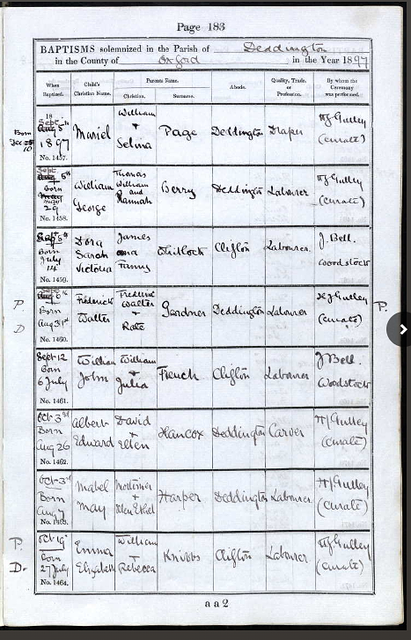 Page 183
BAPTISMS solemnized in the Parish of Deddington
in the County of Oxford in the Year 1897
When Baptized. Child's Christian Name. Parents Name. Abode. Quality, Trade, or Profession. By whom the Ceremony was performed.
Christian. Surname.
18
Sept 5th
1897
Born
No. 1457.
Muriel
William
+
Selina
Page
Deddington
Draper
(Curate)
Sept 5th
Born
29
No. 1458.
William
George
Thomas
William
and
Hannah
Berry
Deddington
Labourer
(Curate)
Sept 5th
Born
July
14
No. 1459.
Dora
Sarah
Victoria
James
and
Fanny
Clifton
Labourer
J. Bell.
Woodstock
P
D
Born
Aug 31st
No. 1460.
Frederick
Walter
Frederick
Walter
+
Kate
Gardner
Deddington
Labourer
(Curate)
P.
Sept 12
Born
6 July
No. 1461.
William
John
William
+
Julia
French
Clifton
Labourer
J Bell.
Woodstock
Oct 3rd
Born
Aug 26
No. 1462.
Albert
Edward
David
+
Ellen
Hancox
Deddington
Carver
(Curate)
Oct 3rd
Born
Aug 7
No. 1463.
Mabel
May
Mortimer
+
Ellen Ethel
Harper
Deddington
Labourer
(Curate)
P.
D.
Oct 19
Born
27 July
No. 1464.
Emma
Elizabeth
William
+
Rebecca
Knibbs
Clifton
Labourer
(Curate)
a a 2